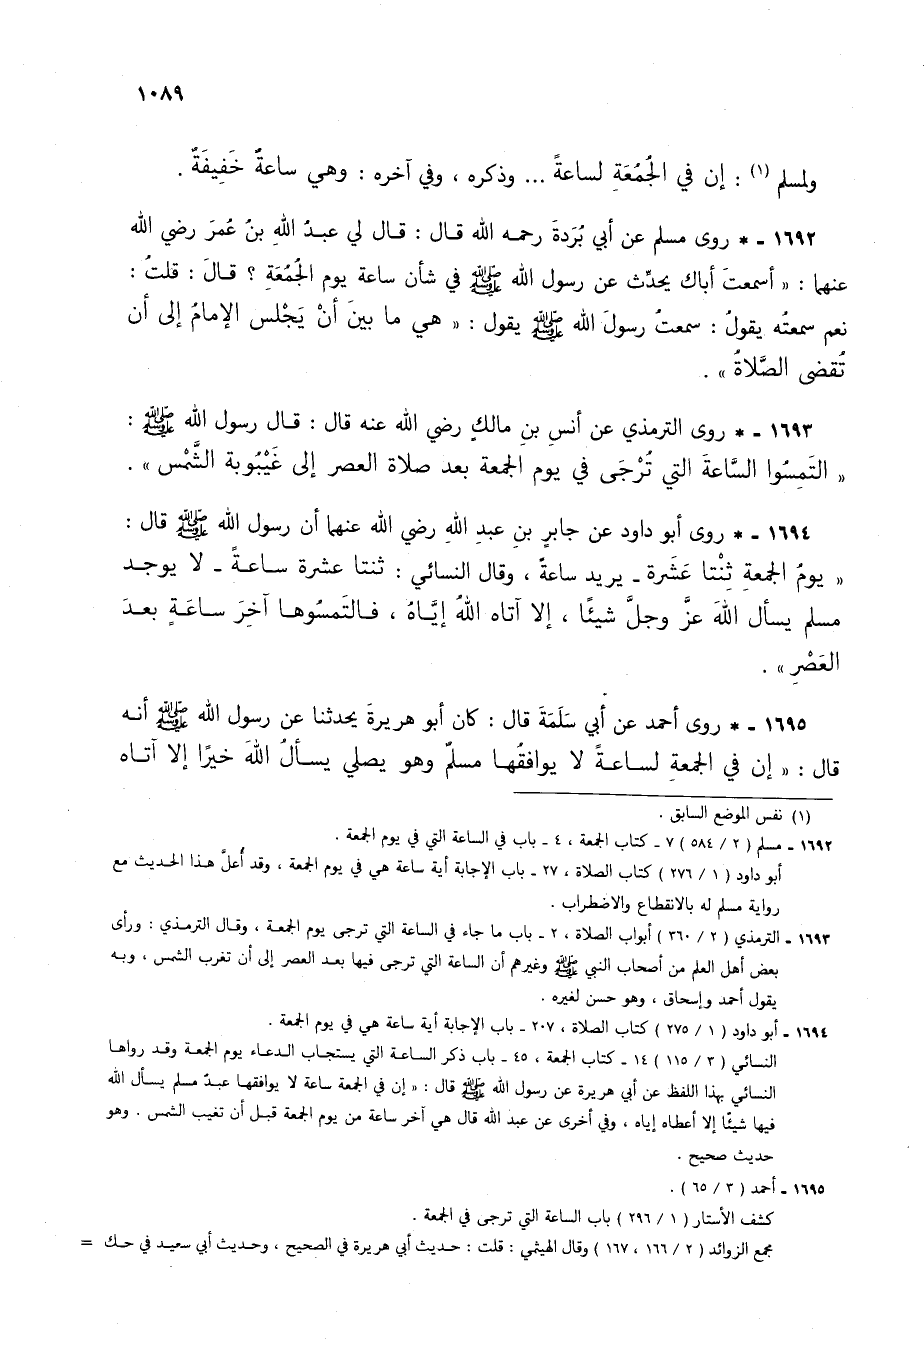 ١٠٨٩
ولمسلم (١) : إن في الجُمُعَةِ لساعةً ... وذكره ، وفي آخره : وهي ساعةٌ خَفِيفَةٌ .
١٦٩٢ - * روى مسلم عن أبي بُرَدةَ رحمه الله قال : قال لي عبدُ اللهِ بنُ عُمرَ رضي الله
عنهما : « أسمعتَ أباك يحدِّث عن رسول الله ﷺ في شأن ساعة يوم الجُمُعَةِ ؟ قالَ : قلتُ :
نعم سمعتُه يقولُ : سمعتُ رسولَ الله ﷺ يقول : « هي ما بينَ أنْ يَجْلس الإمامُ إلى أن
تُقضى الصَّلاةُ » .
١٦٩٣ - * روى الترمذي عن أنسِ بنِ مالكٍ رضي الله عنه قال : قال رسول الله ﷺ :
« التَمِسُوا السَّاعةَ التي تُرْجَى في يوم الجمعة بعد صلاة العصر إلى غَيْبُوبة الشَّمْس » .
١٦٩٤ - * روى أبو داود عن جابرِ بنِ عبدِ اللهِ رضي الله عنهما أن رسول الله ﷺ قال :
« يومُ الجمعةِ ثِنْتا عَشَرة - يريد ساعةً ، وقال النسائي : ثنتا عشرة ساعةً - لا يوجد
مسلم يسأل اللهَ عزَّ وجلَّ شيئًا ، إلا آتاه اللهُ إيَّاهُ ، فالتَمِسُوها آخِرَ ساعَةٍ بعدَ
العَصْرِ » .
١٦٩٥ - * روى أحمد عن أبي سَلَمَةَ قال : كان أبو هريرةَ يحدثنا عن رسول الله ﷺ أنه
قال : « إن في الجمعةِ لساعةً لا يوافقُها مسلمٌ وهو يصلي يسألُ اللهَ خيرًا إلا آتاه
(١) نفس الموضع السابق .
١٦٩٢ - مسلم ( ٢ / ٥٨٤ ) ٧ - كتاب الجمعة ، ٤ - باب في الساعة التي في يوم الجمعة .
أبو داود ( ١ / ٢٧٦ ) كتاب الصلاة ، ٢٧ - باب الإجابة أية ساعة هي في يوم الجمعة ، وقد أُعلَّ هذا الحديث مع
رواية مسلم له بالانقطاع والاضطراب .
١٦٩٣ - الترمذي ( ٢ / ٣٦٠ ) أبواب الصلاة ، ٢ - باب ما جاء في الساعة التي ترجى يوم الجمعة ، وقال الترمذي : ورأى
بعض أهل العلم من أصحاب النبي ﷺ وغيرهم أن الساعة التي ترجى فيها بعد العصر إلى أن تغرب الشمس ، وبه
يقول أحمد وإسحاق ، وهو حسن لغيره .
١٦٩٤ - أبو داود ( ١ / ٢٧٥ ) كتاب الصلاة ، ٢٠٧ - باب الإجابة أية ساعة هي في يوم الجمعة .
النسائي ( ٣ / ١١٥ ) ١٤ - كتاب الجمعة ، ٤٥ - باب ذكر الساعة التي يستجاب الدعاء يوم الجمعة وقد رواها
النسائي بهذا اللفظ عن أبي هريرة عن رسول الله ﷺ قال : « إن في الجمعة ساعة لا يوافقها عبدٌ مسلم يسأل الله
فيها شيئًا إلا أعطاه إياه ، وفي أخرى عن عبد الله قال هي آخر ساعة من يوم الجمعة قبل أن تغيب الشمس . وهو
حديث صحيح .
١٦٩٥ - أحمد ( ٣ / ٦٥ ) .
كشف الأستار ( ١ / ٢٩٦ ) باب الساعة التي ترجى في الجمعة .
مجمع الزوائد ( ٢ / ١٦٦ ، ١٦٧ ) وقال الهيثمي : قلت : حديث أبي هريرة في الصحيح ، وحديث أبي سعيد في حك =